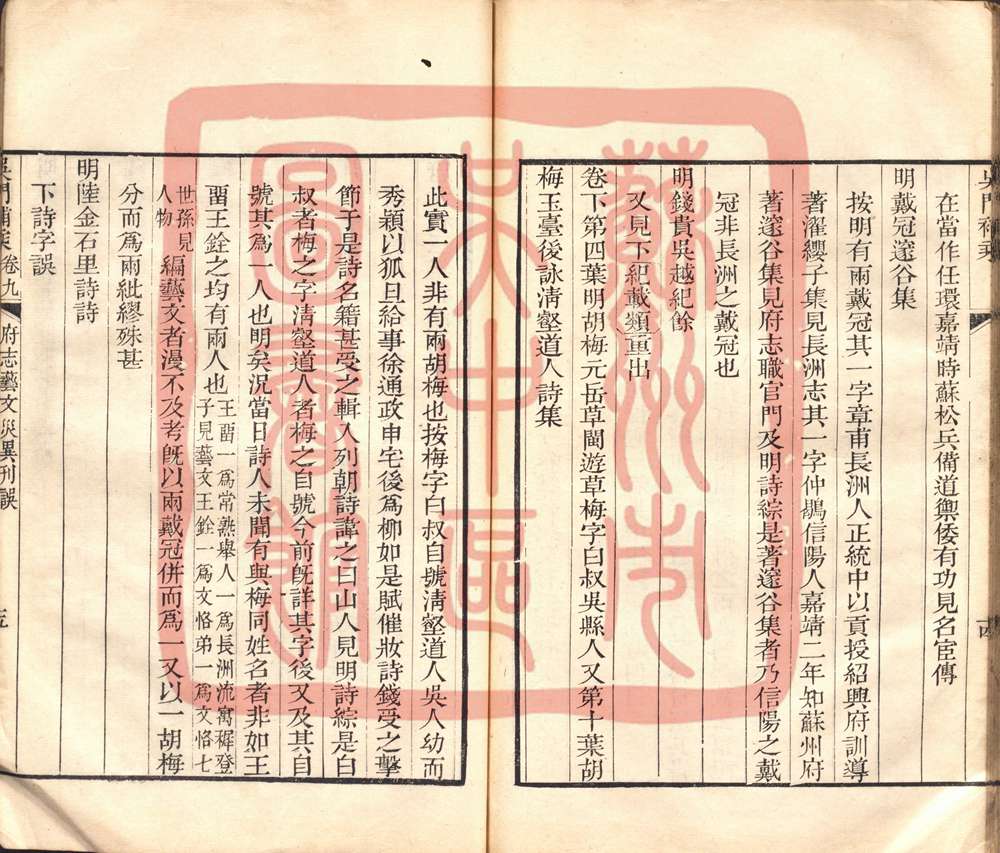 在當作任環嘉靖時蘇松兵備道禦倭有功見名宦傳
明戴冠邃谷集
按明有兩戴冠其一字章甫長洲人正統中以貢授紹興府訓導
著濯纓子集見長洲志其一字仲鶡信陽人嘉靖二年知蘇州府
著邃谷集見府志職官門及明詩綜是著邃谷集者乃信陽之戴
冠非長洲之戴冠也
明錢貴吳越紀餘
又見下紀載類重出
卷下第四葉明胡梅元岳草閩遊草梅字白叔吳縣人又第十葉胡
梅玉臺後詠清壑道人詩集
此實一人非有兩胡梅也按梅字白叔自號清壑道人吳人幼而
秀穎以狐旦給事徐通政申宅後爲柳如是賦催妝詩錢受之擊
節于是詩名籍甚受之輯入列朝詩諱之曰山人見明詩綜是白
叔者梅之字清壑道人者梅之自號今前旣詳其字後又及其自
號其爲一人也明矣況當日詩人未聞有與梅同姓名者非如王
畱王銓之均有兩人也
王畱一爲常熟舉人一爲長洲流寓穉登
子見藝文王銓一爲文恪弟一爲文恪七
世孫見
人物
編藝文者漫不及考旣以兩戴冠併而爲一又以一胡梅
分而爲兩紕繆殊甚
明陸金石里詩詩
下詩字誤
吳門補乘
卷九
府志藝文災異刊誤
蘇州市
吳中區
圖書館